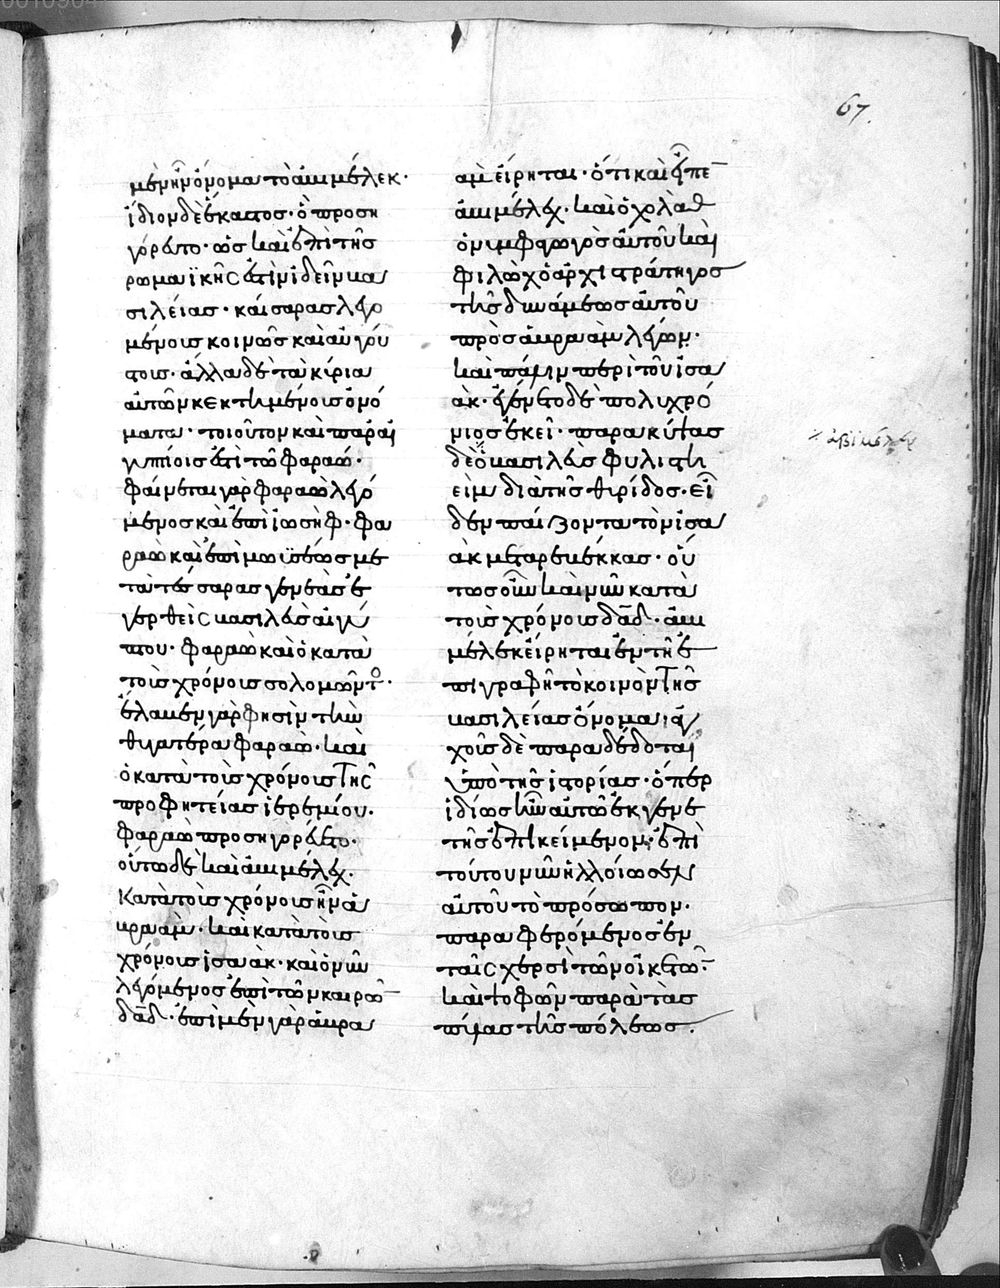 67.
μὲν ἦν ὄνομα τὸ ἀβιμέλεκ·
ἴδιον δὲ ἕκαστος· ὃ προση
γόρευτο· ὡς καὶ ἐπὶ τῆς
ρωμαϊκῆς ἔστιν ἰδεῖν βα
σιλείας· καίσαρας λεγο
μένοις κοινῶς καὶ αὐγού
στοις· ἄλλα δὲ τὰ κύρια
αὐτῶν κεκτημένοις ὀνό
ματα· τοιοῦτον καὶ παρ' αἰ
γυπτίοις ἐστὶ τῶ φαραώ·
φαίνεται γὰρ φαραὼ λεγό
μενος καὶ ἐπὶ ἰωσὴφ· φα
ραὼ καὶ ἐπὶ μωϋσέως με
τὰ τέσσαρας γενεὰς ἐ
γερθεὶς βασιλεὺς αἰγύ
πτου· φαραὼ καὶ ὁ κατὰ
τοὺς χρόνους σολομῶντο·
ἔλαβεν γὰρ φησὶν τὴν
θυγατέρα φαραώ· καὶ
ὁ κατὰ τοὺς χρόνους τῆς
προφητείας ἱερεμίου·
φαραὼ προσηγορεύετο·
οὕτω δὲ καὶ ἀβιμέλεχ·
κατὰ τοὺς χρόνους ἦν ἀ
βραάμ· καὶ κατὰ τοὺς
χρόνους ἰσαάκ· καὶ ὁ νῦν
λεγόμενος ἐπὶ τῶν καιρῶ
δαδ· ἐπὶ μὲν γὰρ ἀβρα
ὰμ εἴρηται· ὅτι καὶ εἶπε
ἀβιμέλεχ· καὶ ὀχολὰθ
ὁ νυμφαγωγὸς αὐτοῦ καὶ
φιλὼχ ὁ ἀρχιστράτηγος
τῆς δυνάμεως αὐτοῦ
πρὸς ἀβραὰμ λέγων·
καὶ πάλιν περὶ τοῦ ἰσα
άκ· ἐγένετο δὲ πολυχρό
νιος ἐκεῖ· παρακύψας
δὲ ὁ βασιλεὺς φυλιστι
εὶμ διὰ τῆς θυρίδος· εἶ
δεν παίζοντα τὸν ἰσα
ὰκ μετὰ ρεβέκκας· οὕ
τως οὖν καὶ νῦν κατὰ
τοὺς χρόνους δαδ· ἀβι
μέλεκ εἴρηται ἐν τῆ ἐ
πιγραφῆ τὸ κοινὸν τῆς
βασιλείας ὄνομα· ἀ
χοῦς δὲ παραδέδοται
ὑπὸ τῆς ἱστορίας· ὅπερ
ἰδίως ἦν αὐτῶ ἐκ γενε
τῆς ἐπικείμενον· ἐπὶ
τούτου νῦν ἠλλοίωσεν
αὐτοῦ τὸ πρόσωπον·
παραφερόμενος ἐν
ταῖς χερσὶ τῶν οἰκετῶ·
καὶ ψοφῶν παρὰ τὰς
πύλας τῆς πόλεως·